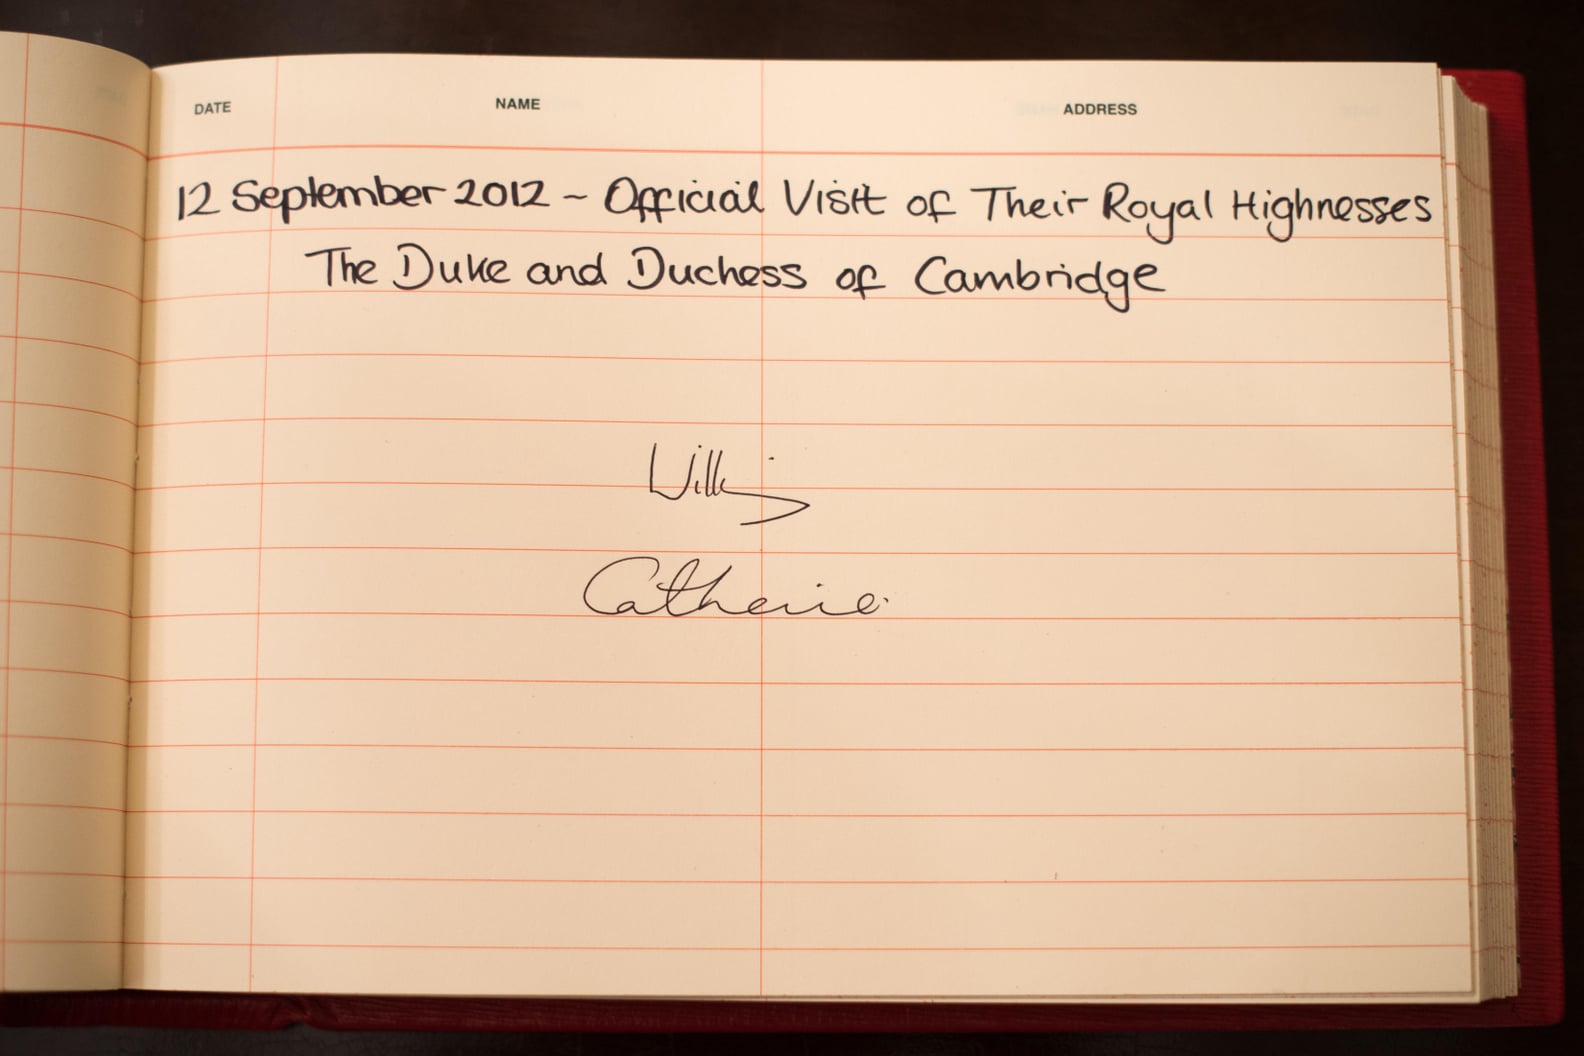 DATE NAME ADDRESS
12 September 2012 ~ Official Visit of Their Royal Highnesses
The Duke and Duchess of Cambridge
William
Catherine